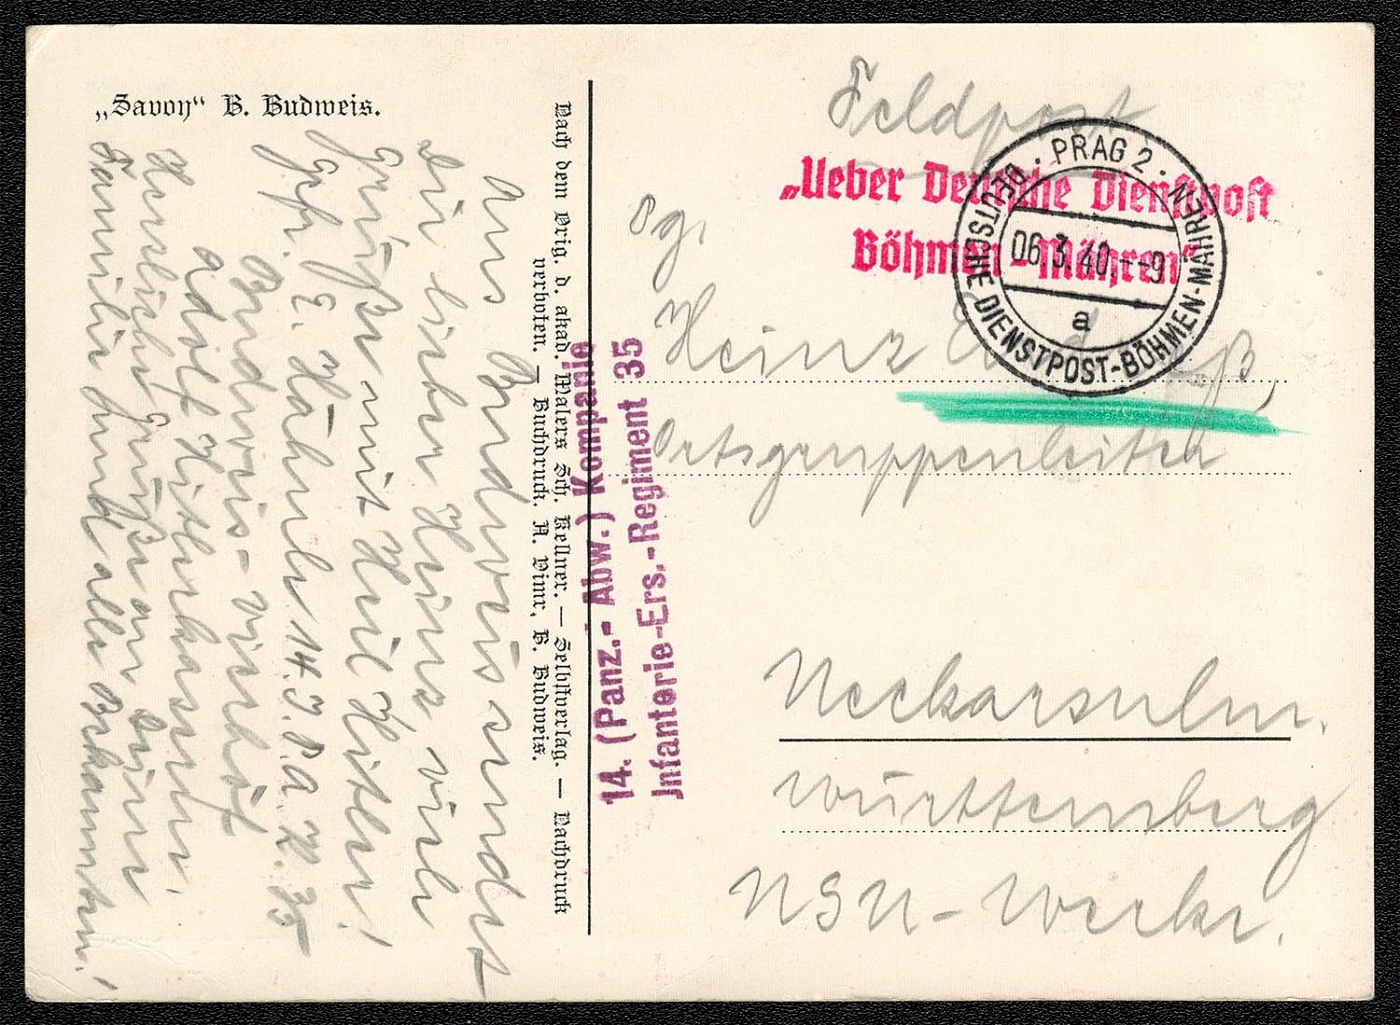 „Savoy“ B. Budweis.
Aus Budweis sendet
Dir lieber Heinz viele
Grüße mit Heil Hitler!
Gefr. E. 14. I. P. A. K. 35
Budweis-Vierhöf
Adolf Hitlerkaserne.
Herzliche Grüße an Deine
Familie und alle Bekannten!
Nach dem Orig. d. akad. Malers Sch. Kellner. — Selbstverlag. — Nachdruck
verboten. — Buchdruck. A. Vimr, B. Budweis.
14. (Panz.- Abw.) Kompanie
Infanterie-Ers.-Regiment 35
Feldpost
„Ueber Deutsche Dienstpost
Böhmen-Mähren“
· PRAG 2 ·
DEUTSCHE DIENSTPOST-BÖHMEN-MÄHREN
06.3.40.-9
a
Og.
Heinz
Ortsgruppenleiter
Neckarsulm.
Württemberg
NSU-Werke.